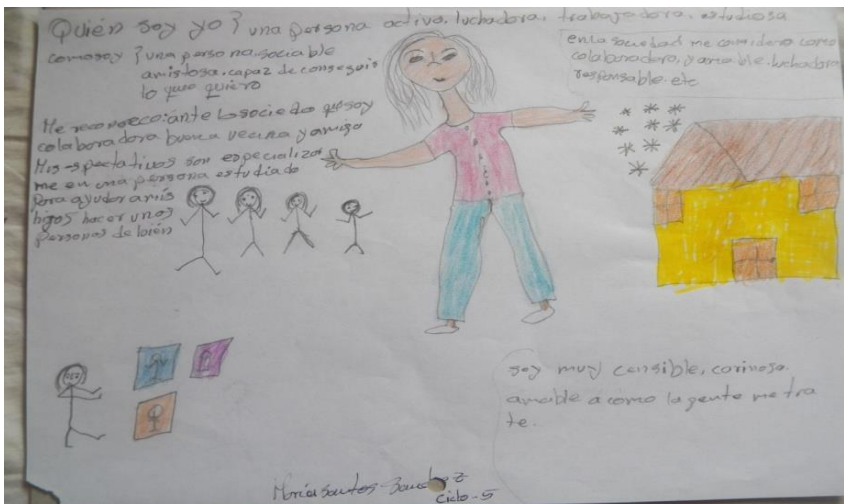 Quién soy yo? una persona activa, luchadora. trabajadora. estudiosa
comosoy? una persona sociable
amistosa. capaz de conseguir
lo que quiero
Me reconozco: ante lasociedad quesoy
colaboradora buena vecina y amiga
Mis-espectativas son especializar
me en una persona estudiada
para ayudar amis
hijos hacer unas
personas de bién
enla sociedad me considero como
colaboradora, yamable. luchadora
responsable. etc
soy muy censible, cariñosa.
amable a como la gente me tra
te.
María santos-
ciclo-5